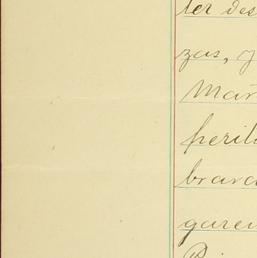 ter des
zas, y
Mar
perit
brara
garen